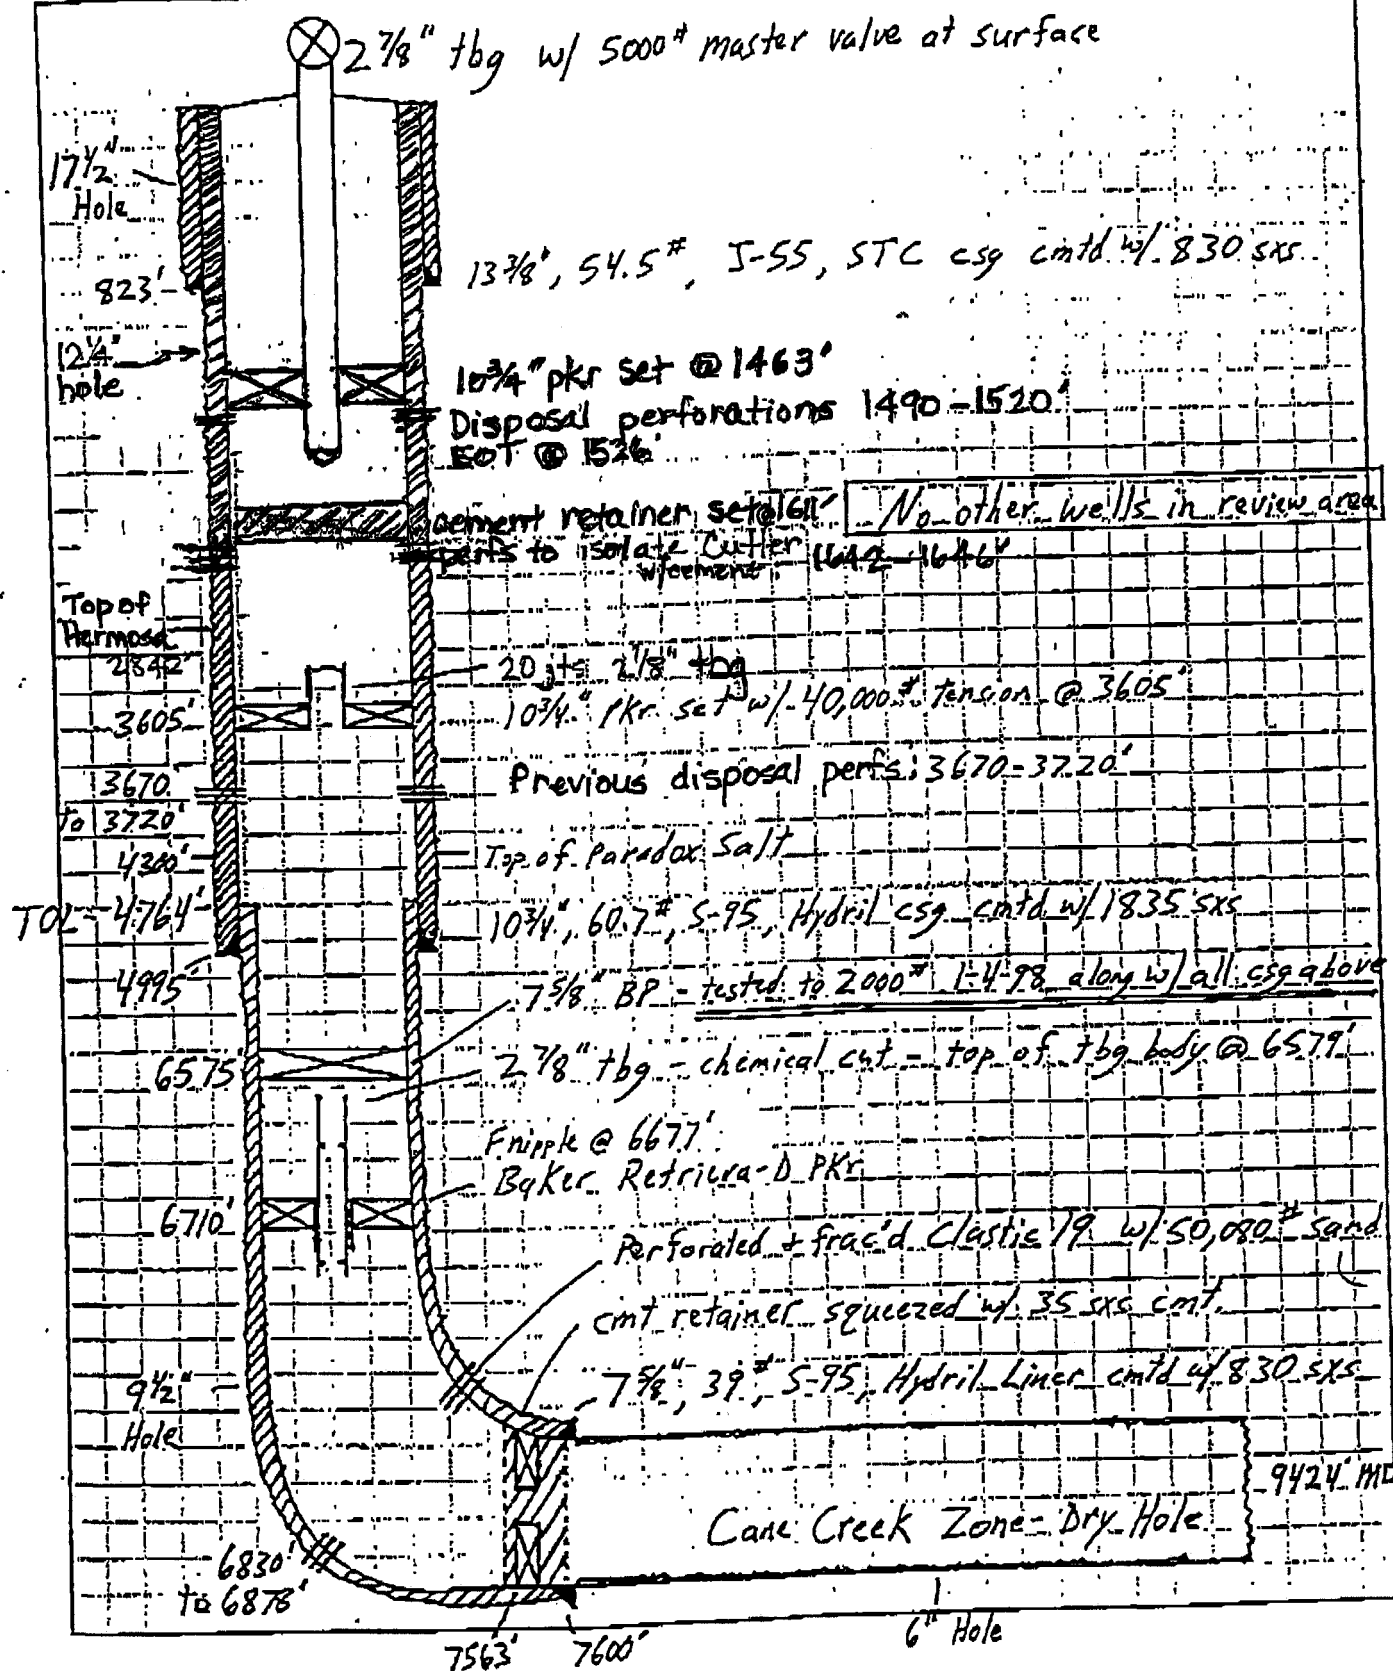 2 7/8" tbg w/ 5000# master valve at surface
17 1/2"
Hole
13 3/8", 54.5#, J-55, STC csg cmtd w/ 830 sxs
823'
12 1/4"
hole
10 3/4" pkr set @ 1463'
Disposal perforations 1490-1520'
EOT @ 1526'
cement retainer set @ 1611'
No other wells in review area
perfs to isolate Cutler 1642-1646'
w/cement
Top of
Hermosa
2842'
20 jts 2 7/8" tbg
10 3/4" pkr set w/ 40,000# tension @ 3605'
3605'
Previous disposal perfs: 3670-3720'
3670
to 3720'
4300'
Top of Paradox Salt
TOL- 4764'
10 3/4", 60.7#, S-95, Hydril csg cmtd w/ 1835 sxs
4995'
7 5/8" BP - tested to 2000# 1-4-98 along w/ all csg above
2 7/8" tbg - chemical cut - top of tbg body @ 6579'
6575'
F nipple @ 6677'
Baker Retrieva-D PKr
6710'
Perforated + frac'd Clastic 19 w/ 50,080# sand
cmt retainer squeezed w/ 35 sxs cmt.
7 5/8", 39#, S-95, Hydril Liner cmtd w/ 830 sxs
9 1/2"
Hole
9424' MD
Cane Creek Zone - Dry Hole
6830'
to 6878'
7563'
7600'
6" Hole